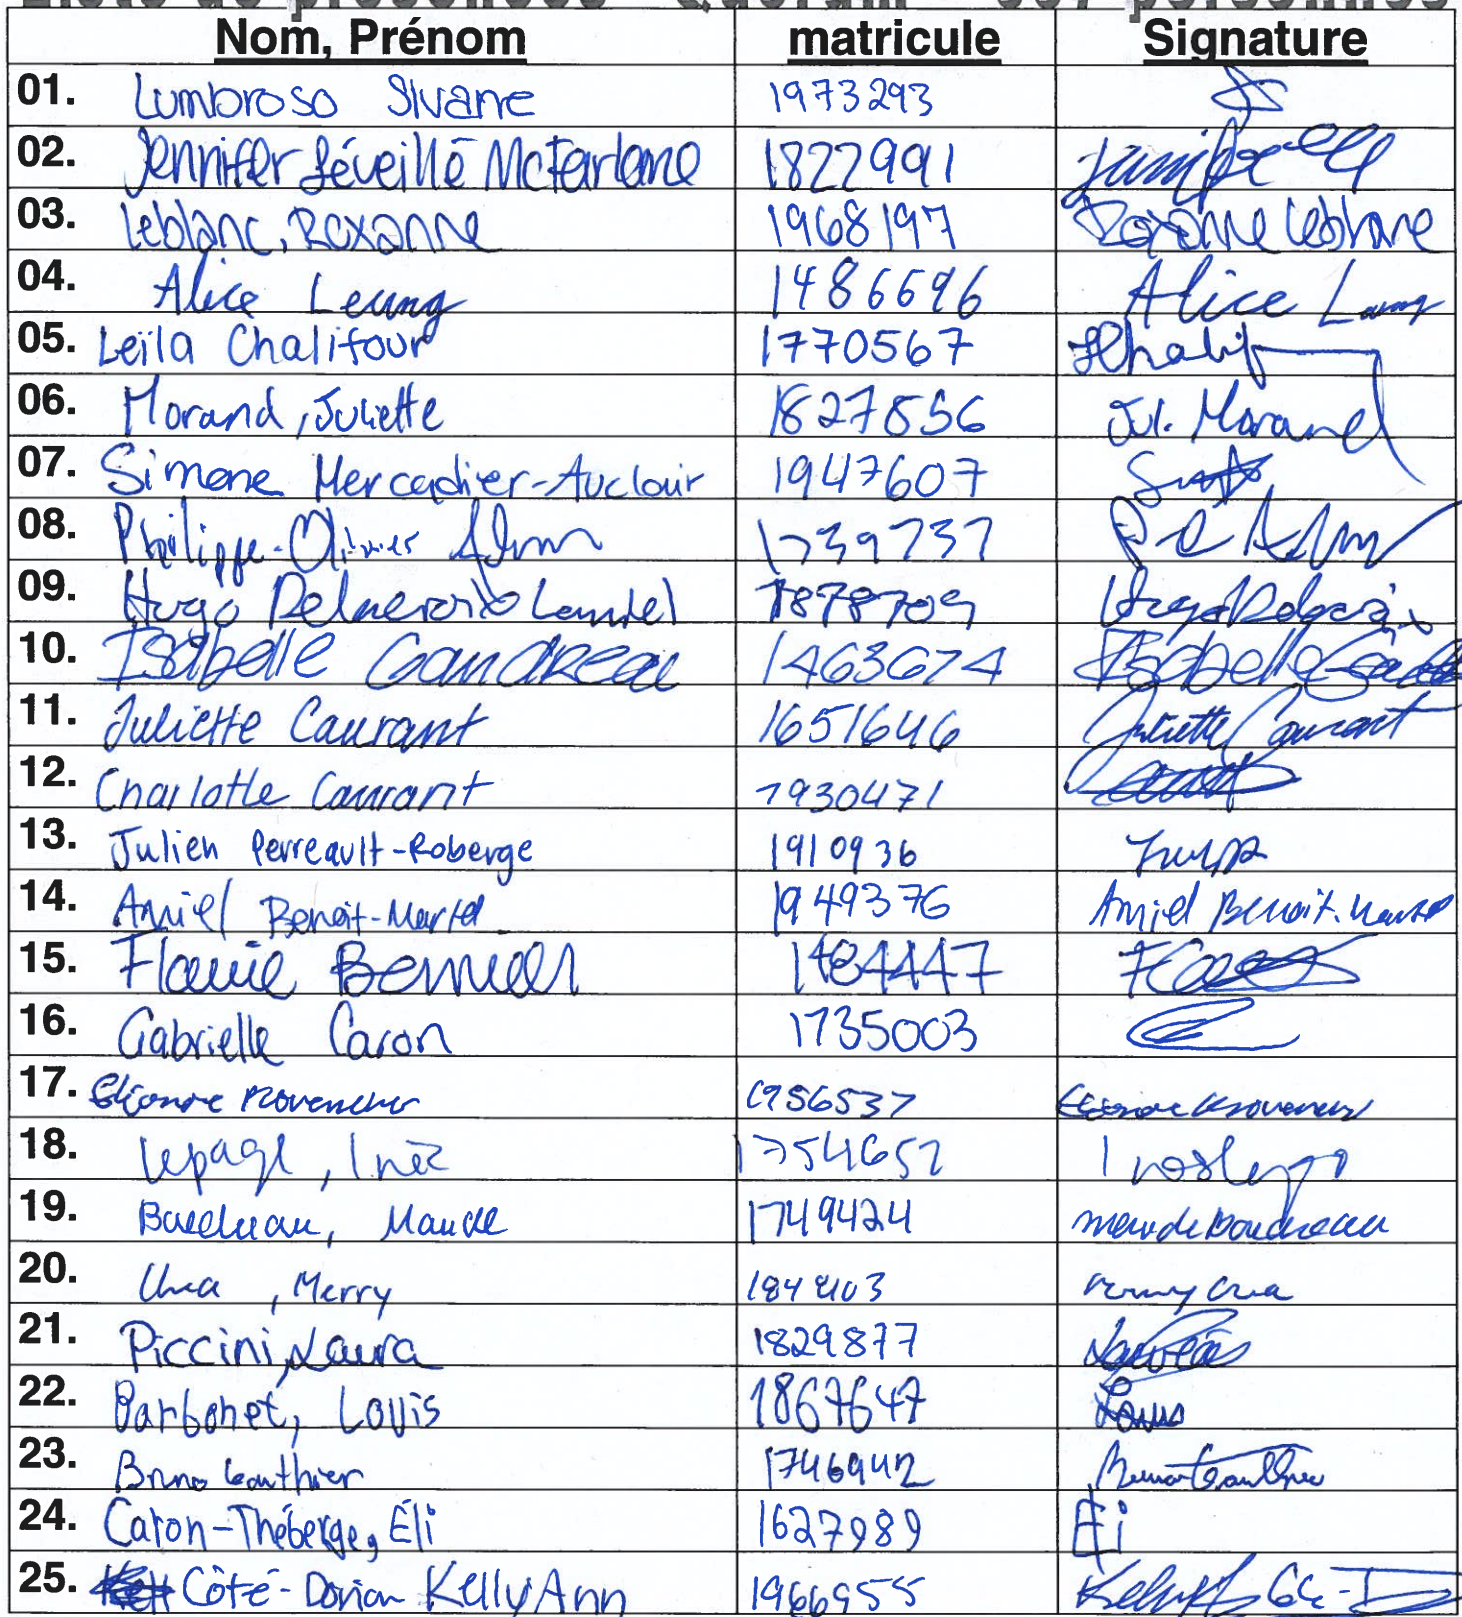 Liste de présences - Quorum = 337 personnes
Nom, Prénom matricule Signature
01. Lumbroso Sivane 1973293
02. Jennifer Léveillé McFarlane 1822991
03. Leblanc, Roxanne 1968197 Roxanne Leblanc
04. Alice Leung 1486696 Alice Leung
05. Leïla Chalifour 1770567
06. Morand, Juliette 1827856 Jul. Morand
07. Simone Mercadier-Auclair 1947607
08. Philippe-Olivier 1739737
09. Hugo 1878709 Hugo
10. Isabelle Gaudreau 1463674 Isabelle
11. Juliette Caurant 1651646 Juliette Caurant
12. Charlotte Caurant 1930471
13. Julien Perreault-Roberge 1910936
14. Amiel Benoit-Martel 1949376 Amiel Benoit-Martel
15. 1484447
16. Gabrielle Caron 1735003
17. Provencher 1956537
18. Lepage, Inèz 1754652
19. Boudreau, Maude 1749424 Maude Boudreau
20. , Merry
21. Piccini, Laura 1829877
22. Barbonet, Louis 1867647 Louis
23. Bruno Gauthier 1746942 Bruno Gauthier
24. Caron-Théberge, Éli 1627989 Éli
25. Côté-Dorion Kelly Ann 1966955